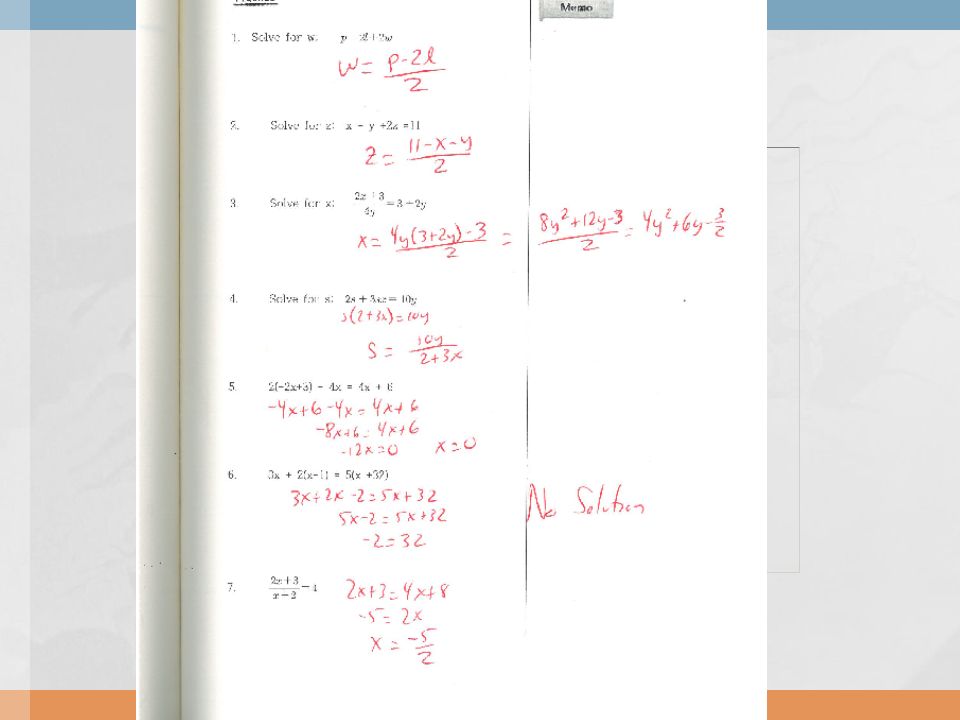 Memo
1. Solve for w: p = 2l + 2w
w = p-2l / 2
2. Solve for z: x - y +2z =11
z = 11-x-y / 2
3. Solve for x: 2x + 3 / 4y = 3 + 2y
x = 4y(3+2y)-3 / 2 = 8y²+12y-3 / 2 = 4y²+6y-3/2
4. Solve for s: 2s + 3sx = 10y
s(2+3x)=10y
s = 10y / 2+3x
5. 2(-2x+3) - 4x = 4x + 6
-4x+6-4x=4x+6
-8x+6=4x+6
-12x=0 x=0
6. 3x + 2(x-1) = 5(x +32)
3x+2x-2=5x+32
5x-2=5x+32 No Solution
-2=32
7. 2x+3 / x-2 = 4 2x+3=4x+8
-5=2x
x = -5/2